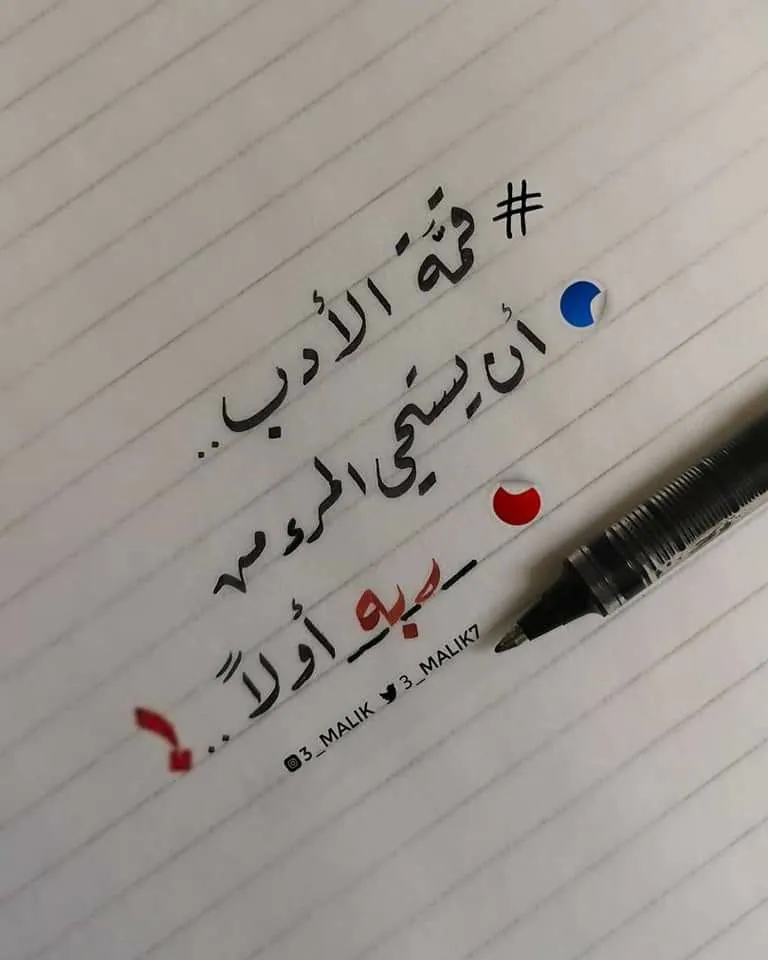 # قمَّة الأدب..
أن يستحي المرء من
ربه أولاً..!
3_MALIK 3_MALIK7